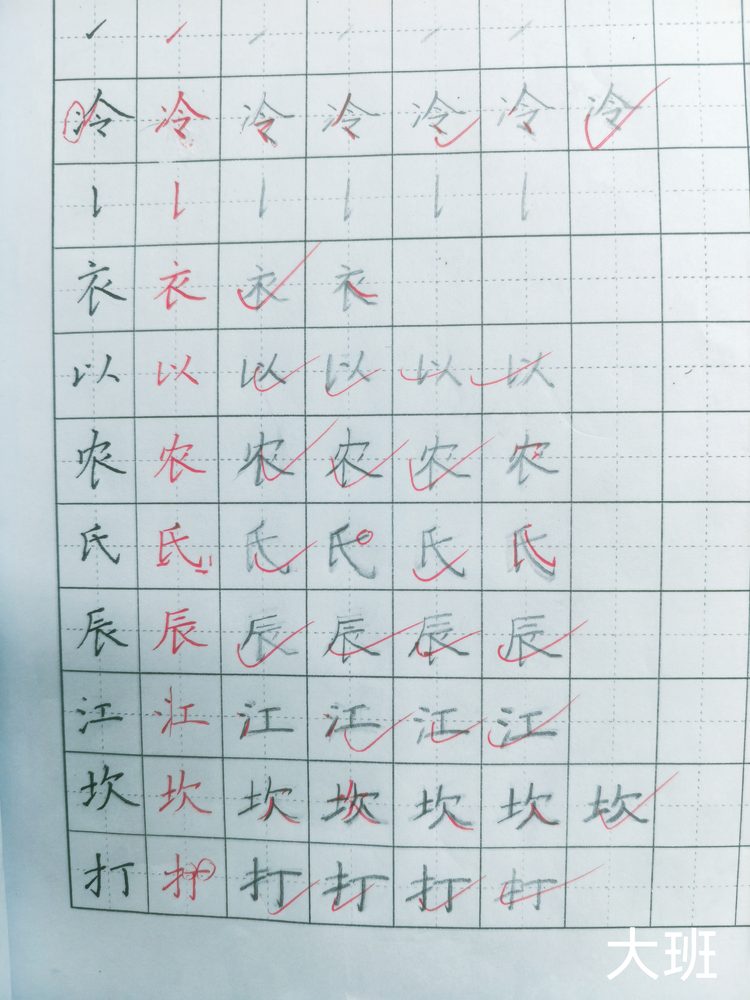 冷冷冷冷冷冷冷
衣衣衣衣
以以以以以以
农农农农农农
氏氏氏氏氏氏
辰辰辰辰辰辰
江江江江江江
坎坎坎坎坎坎坎
打打打打打打
大班